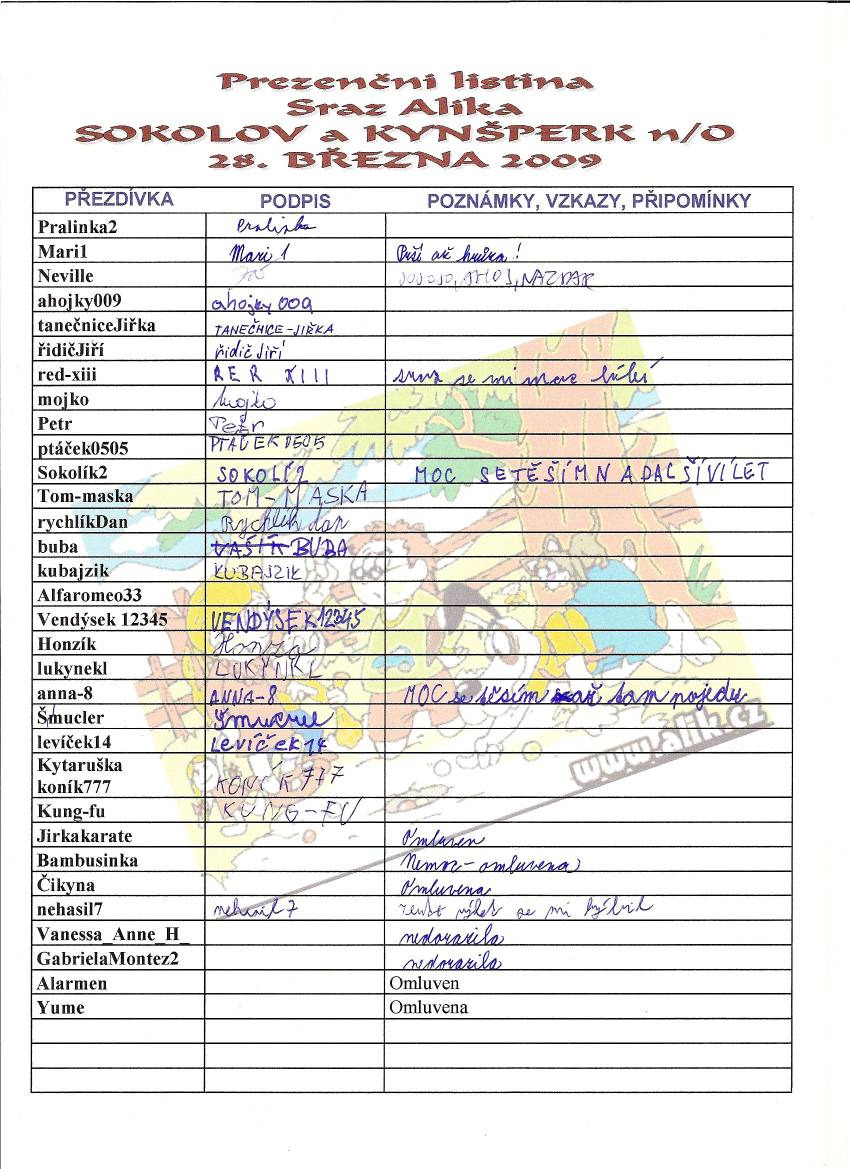 Prezenční listina
Sraz Alika
SOKOLOV a KYNŠPERK n/O
28. BŘEZNA 2009
PŘEZDÍVKA PODPIS POZNÁMKY, VZKAZY, PŘIPOMÍNKY
Pralinka2 Pralinka
Mari1 Mari 1
Neville AHOJ, NAZDAR
ahojky009 ahojky 009
tanečniceJiřka TANEČNICE-JIŘKA
řidičJiří řidič Jiří
red-xiii RER XIII sraz se mi moc líbil
mojko mojko
Petr Petr
ptáček0505 PTÁČEK0505
Sokolík2 SOKOLÍ2 MOC SETĚŠÍM N A DALŠÍVÍLET
Tom-maska TOM-MASKA
rychlíkDan Rychlík dan
buba VAŠÍK BUBA
kubajzik KUBAJZIK
Alfaromeo33
Vendýsek 12345 VENDÝSEK12345
Honzík Honza
lukynekl LUKYNKL
anna-8 ANNA-8 MOC se těším až tam pojedu
Šmucler
levíček14 Levíček14
Kytaruška
koník777 KONÍK777
Kung-fu KUNG-FU
Jirkakarate Omluven
Bambusinka Nemoc-omluvena
Čikyna Omluvena
nehasil7 nehasil7 Tento výlet se mi
Vanessa_Anne_H_ nedorazila
GabrielaMontez2 nedorazila
Alarmen Omluven
Yume Omluvena
www.alik.cz